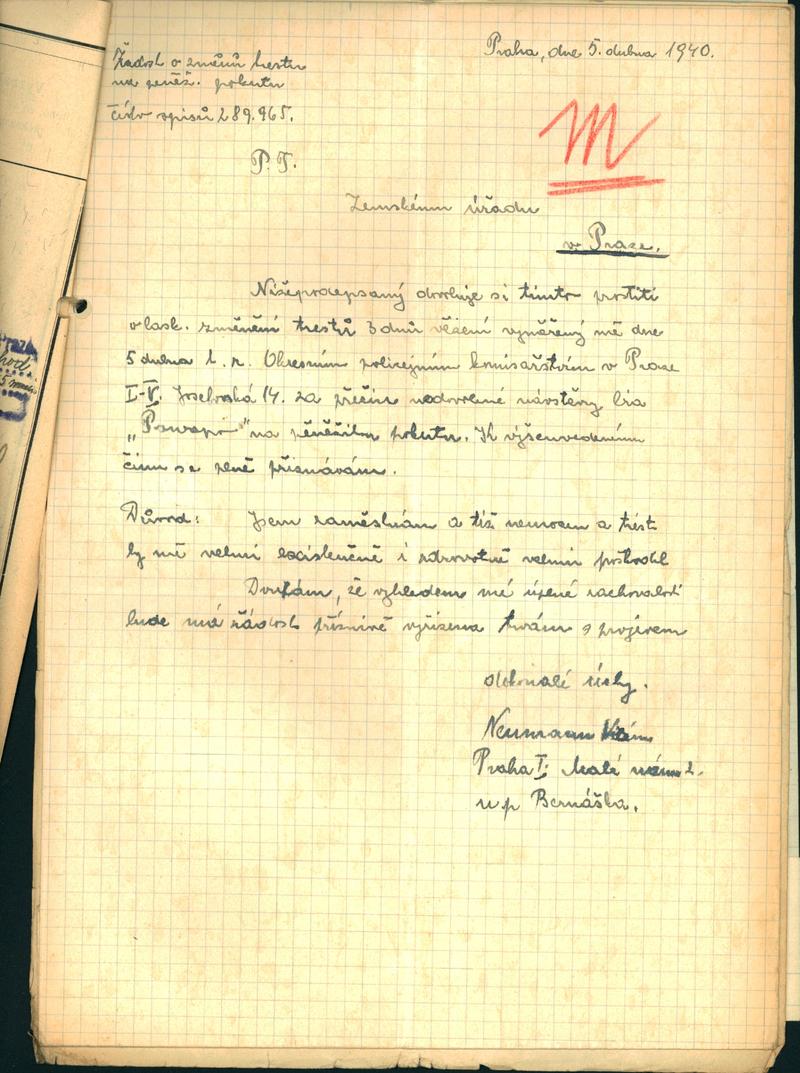 Praha, dne 5. dubna 1940.
Žádost o změnu trestu
na peněž. pokutu
číslo spisů 289.965.
M
P. T.
Zemskému úřadu
v Praze.
Nížepodepsaný dovoluje si tímto prositi
o lask. změnění trestu 3 dnů vězení vyměřený mě dne
5 dubna t. r. Okresním policejním komisařstvím v Praze
I-V. Josefovská 14. za přečin nedovolené návštěvy
na peněžitou pokutu. K výšeuvedenému
činu se plně přiznávám.
Důvod: Jsem zaměstnán a též nemocen a trest
by mě velmi existenčně i zdravotně velmi poškodil
Doufám, že vzhledem mé úplné zachovalosti
bude má žádost příznivě vyřízena trvám s projevem
dokonalé úcty.
Neumann Vilém
Praha I. Malé nám 2.
u p Bernáška.